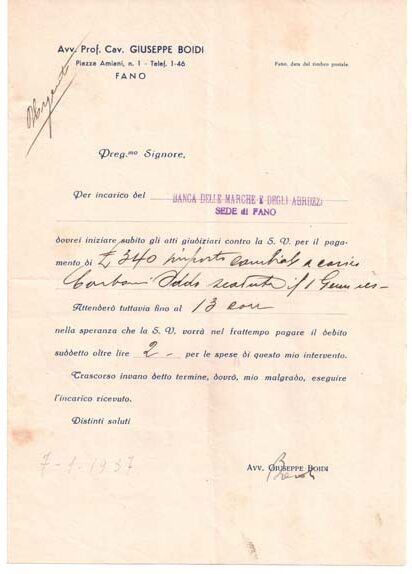 Avv. Prof. Cav. GIUSEPPE BOIDI
Piazza Amiani, n. 1 - Telef. 1-46
FANO
Fano, data del timbro postale.
Preg.mo Signore,
Per incarico del BANCA DELLE MARCHE E DEGLI ABRUZZI
SEDE di FANO
dovrei iniziare subito gli atti giudiziari contro la S. V. per il paga-
mento di £ 340 importo cambiale a carico
Oddo scaduta il 1
Attenderò tuttavia fino al 13 corr
nella speranza che la S. V. vorrà nel frattempo pagare il debito
suddetto oltre lire 2 - per le spese di questo mio intervento.
Trascorso invano detto termine, dovrò, mio malgrado, eseguire
l'incarico ricevuto.
Distinti saluti
7-1-1937
Avv. GIUSEPPE BOIDI